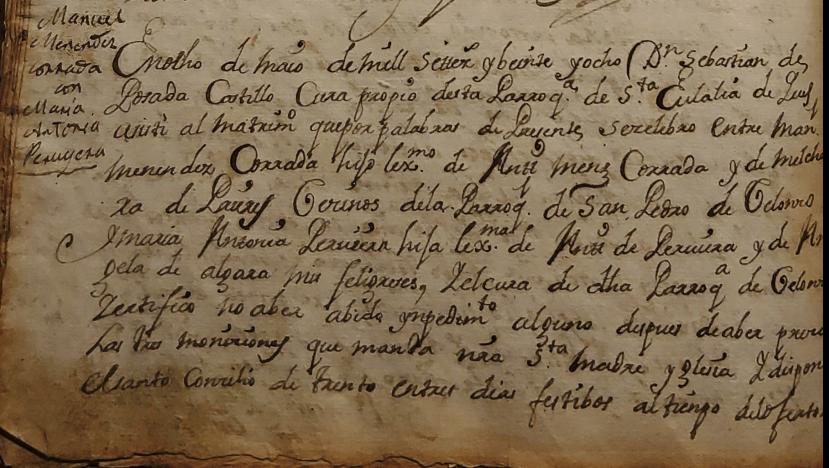 Manuel
Menendez
Corrada
con
Maria
Antonia
Peruyera
En ocho de maio de mill setez y beinte y ocho Dn Sebastian de
Posada Castillo Cura propio desta Parroqa de Sta Eulalia de
asisti al matrimo que por palabras de Presente se zelebro entre Man
menendez Corrada hijo lexmo de Antt menz Corrada y de Melcho
ra de vezinos de la Parroq de San Pedro de
Y maria Antonia Peruiera hija lexma de Antt de Peruiera y de An
gela de algara mis feligreses, Y el cura de dha Parroqa de
Zertifico no aber abido ynpedimto alguno despues de aber
las tres moniziones que manda nra Sta madre yglesia Y dispon
el santo Conzilio de trento en tres dias festibos al tienpo del oferto